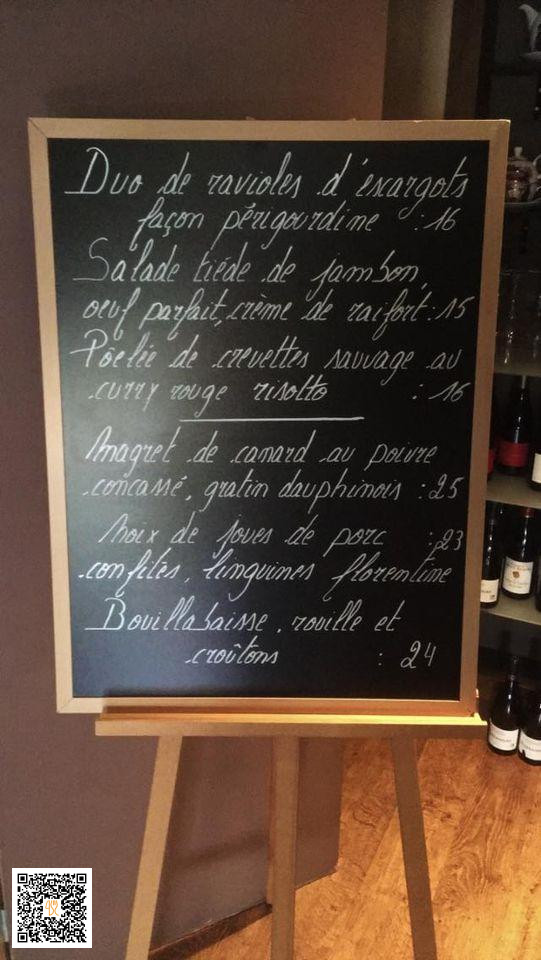 Duo de ravioles d'escargots
façon périgourdine : 16
Salade tiéde de jambon,
oeuf parfait, crème de raifort : 15
Pöelée de crevettes sauvage au
curry rouge risotto : 16
Magret de canard au poivre
concassé, gratin dauphinois : 25
Noix de joues de porc : 23
confités, linguines florentine
Bouillabaisse, rouille et
croûtons : 24